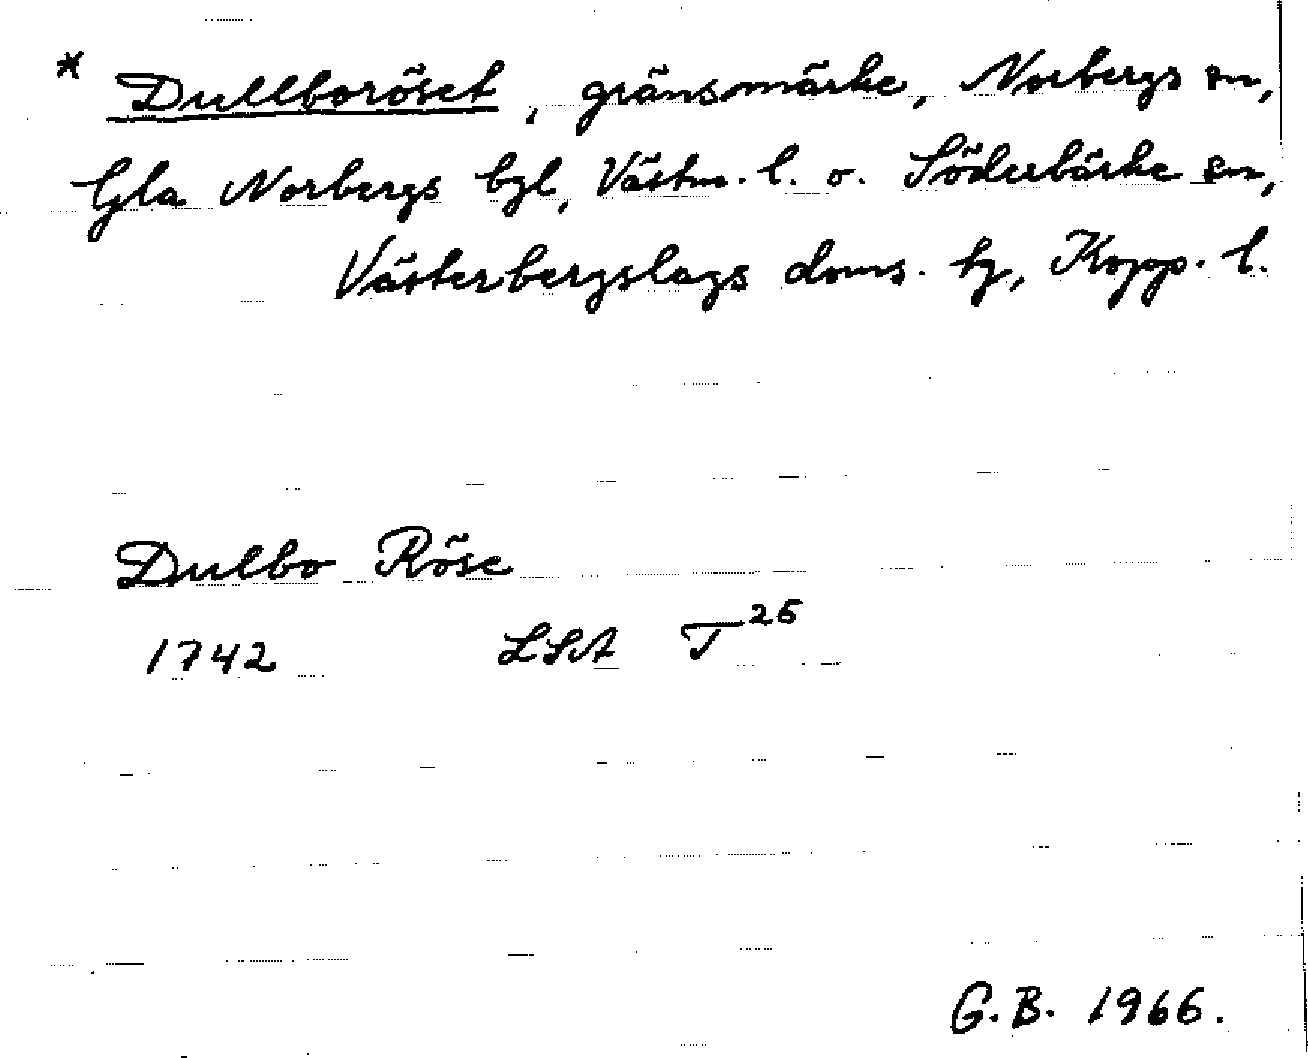 * Dullboröset, gränsmärke, Norbergs sn,
Gla Norbergs bgl, Västm. l. o. Söderbärke sn,
Västerbergslags doms. tg, Kopp. l.
Dulbo Röse
1742 LSA T²⁶
G.B. 1966.